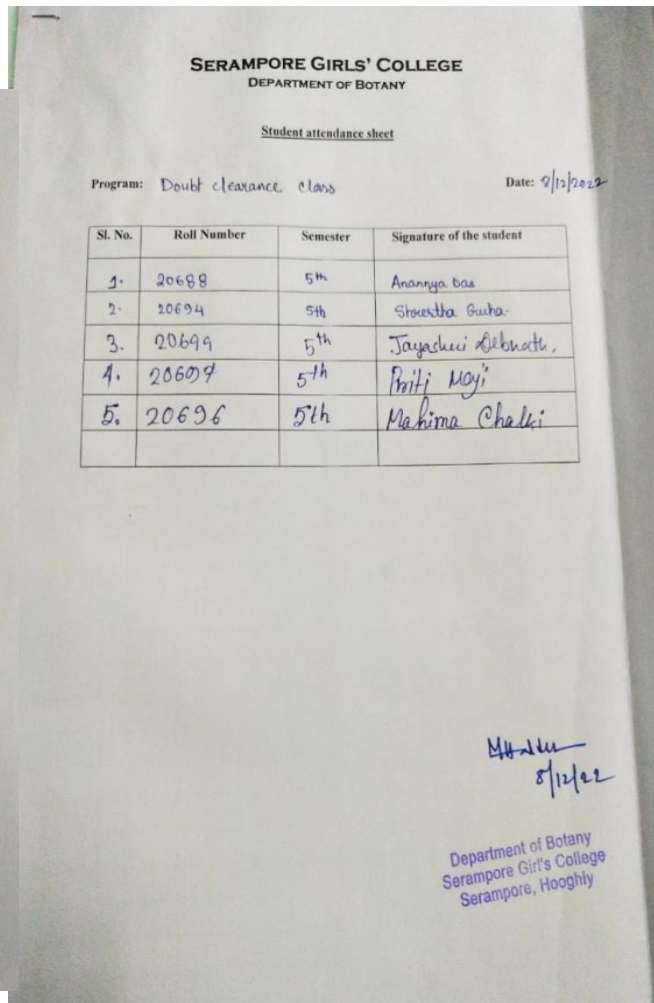 SERAMPORE GIRLS' COLLEGE
DEPARTMENT OF BOTANY
Student attendance sheet
Program: Doubt clearance class Date: 8/12/2022
Sl. No. Roll Number Semester Signature of the student
1. 20688 5th Anannya Das
2. 20694 5th Guha
3. 20699 5th Jayashri Debnath,
4. 20697 5th Priti Moyi
5. 20696 5th Mahima Chalki
8/12/22
Department of Botany
Serampore Girl's College
Serampore, Hooghly